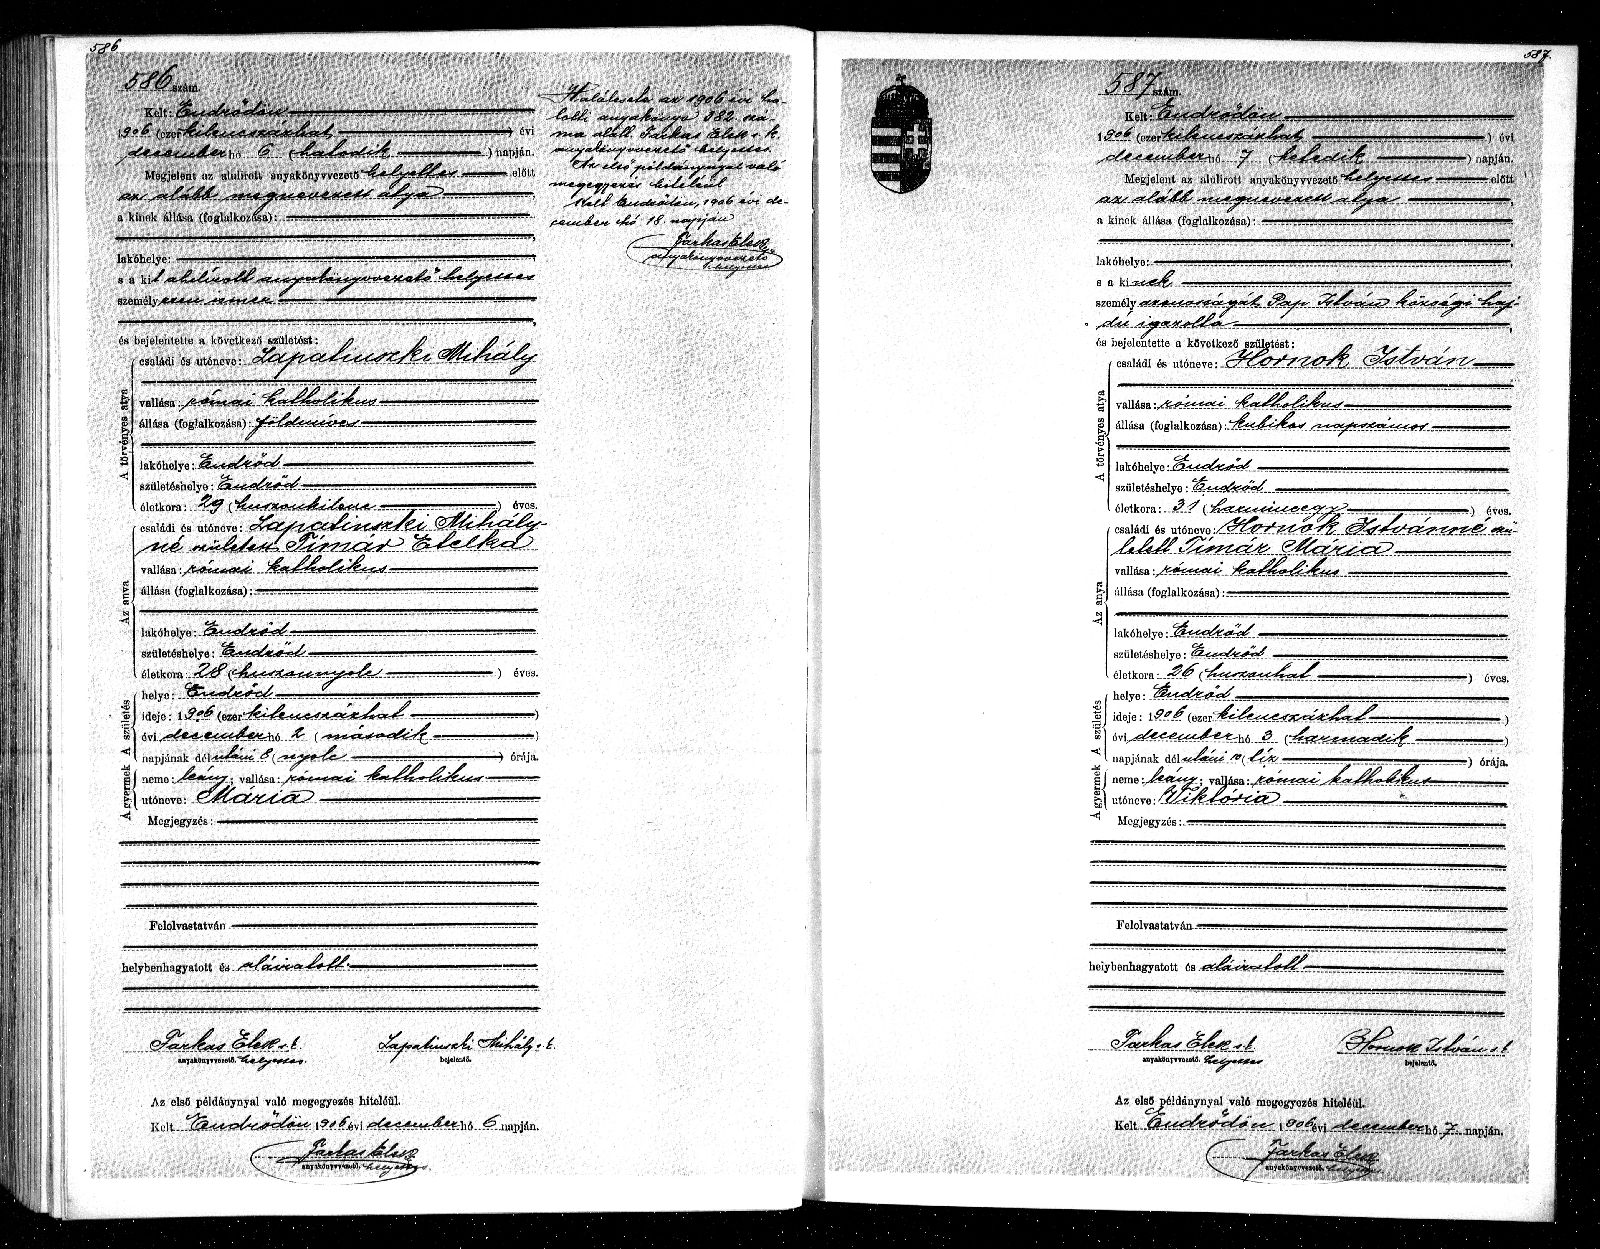 586
586 szám.
Kelt: Endrődön
1906 (ezer kilencszázhat ) évi
december hó 6 (hatodik ) napján.
Megjelent az alulirott anyakönyvvezető helyettes előtt
az alább megnevezett atya
a kinek állása (foglalkozása):
lakóhelye:
s a kit alulírott anyakönyvvezető helyettes
személyesen ismer
és bejelentette a következő születést:
A törvényes atya
családi és utóneve: Lapatinszki Mihály
vallása: római katholikus
állása (foglalkozása): földmíves
lakóhelye: Endrőd
születéshelye: Endrőd
életkora: 29 (huszonkilenc ) éves.
Az anya
családi és utóneve: Lapatinszki Mihály-
né született Tímár Etelka
vallása: római katholikus
állása (foglalkozása):
lakóhelye: Endrőd
születéshelye: Endrőd
életkora 28 (huszonnyolc ) éves.
A születés
helye: Endrőd
ideje: 1906 (ezer kilencszázhat )
évi december hó 2 (második )
napjának délutáni 8 (nyolc ) órája.
A gyermek
neme: leány; vallása: római katholikus
utóneve: Mária
Megjegyzés:
Felolvastatván
helybenhagyatott és aláiratott.
Farkas Elek s. k. Lapatinszki Mihály s. k.
anyakönyvvezető. helyettes bejelentő.
Az első példánynyal való megegyezés hiteléül.
Kelt Endrődön 1906 évi december hó 6 napján.
Farkas Elek
anyakönyvvezető. helyettes
Halálesete az 1906 évi ha-
lotti anyakönyv 382 szá-
ma alatt. Farkas Elek s. k.
anyakönyvvezető helyettes
Az első példánynyal való
megegyezés hiteléül
Kelt Endrődön, 1906 évi de-
cember hó 18. napján
Farkas Elek
anyakönyvvezető
helyettes
587.
587 szám.
Kelt: Endrődön
1906 (ezer kilencszázhat ) évi
december hó 7 (hetedik ) napján.
Megjelent az alulirott anyakönyvvezető helyettes előtt
az alább megnevezett atya
a kinek állása (foglalkozása):
lakóhelye:
s a kinek
személyazonosságát Pap István községi haj-
dú igazolta
és bejelentette a következő születést:
A törvényes atya
családi és utóneve: Hornok István
vallása: római katholikus
állása (foglalkozása): kubikos napszámos
lakóhelye: Endrőd
születéshelye: Endrőd
életkora: 31 (harmincegy ) éves.
Az anya
családi és utóneve: Hornok Istvánné szü-
letett Tímár Mária
vallása: római katholikus
állása (foglalkozása):
lakóhelye: Endrőd
születéshelye: Endrőd
életkora: 26 (huszonhat ) éves.
A születés
helye: Endrőd
ideje: 1906 (ezer kilencszázhat )
évi december hó 3 (harmadik )
napjának délutáni 10 (tíz ) órája.
A gyermek
neme: leány; vallása: római katholikus
utóneve: Viktória
Megjegyzés:
Felolvastatván
helybenhagyatott és aláiratott
Farkas Elek s. k. Hornok István s. k.
anyakönyvvezető. helyettes bejelentő.
Az első példánynyal való megegyezés hiteléül.
Kelt Endrődön 1906 évi december hó 7 napján.
Farkas Elek
anyakönyvvezető. helyettes